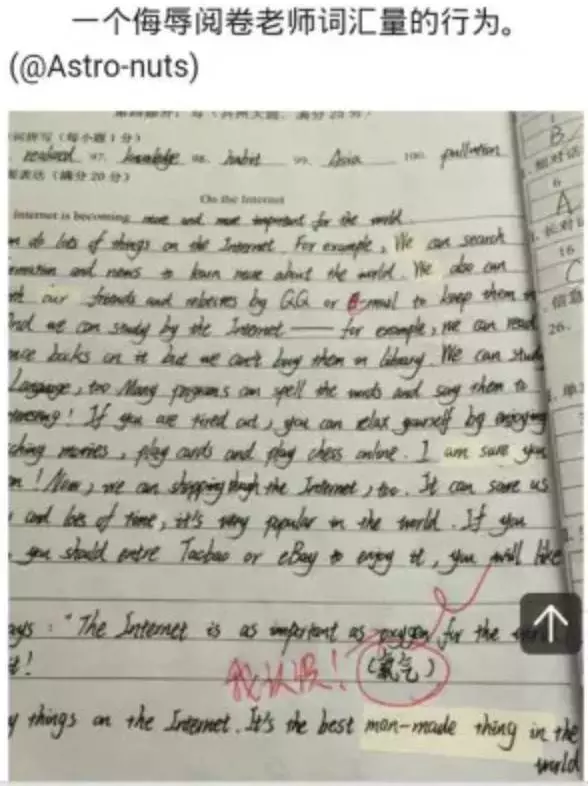 一个侮辱阅卷老师词汇量的行为。
(@Astro-nuts)
词拼写(每小题1分)
realized 97. knowledge 98. habit 99. Asia 100. pollution
表达(满分20分)
On the Internet
Internet is becoming more and more important for the world.
n do lots of things on the Internet. For example, We can search
rmation and news to learn more about the world. We also can
our friends and by QQ or E-mail to keep them in
nd we can study by the Internet — for example, we can read
books on it but we can't buy them in library. We can study
Language, too. Many programs can spell the words and say them to
! If you are tired out, you can relax yourself by enjoying
ching movies, play cards and play chess online. I am sure you
n! Now, we can shopping the Internet, too. It can save us
and lots of time, it's very popular in the world. If you
you should entre Taobao or eBay to enjoy it, you will like
ays: "The Internet is as important as oxygen for the world
t!
我认识! (氧气)
y things on the Internet. It's the best man-made thing in the
world
B
A
16
C
26.